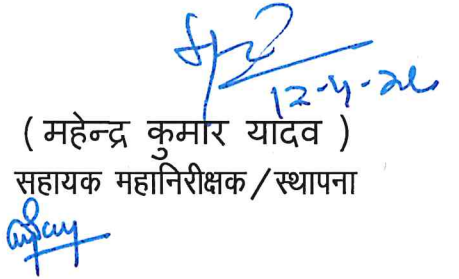 12-4-26
( महेन्द्र कुमार यादव )
सहायक महानिरीक्षक/स्थापना